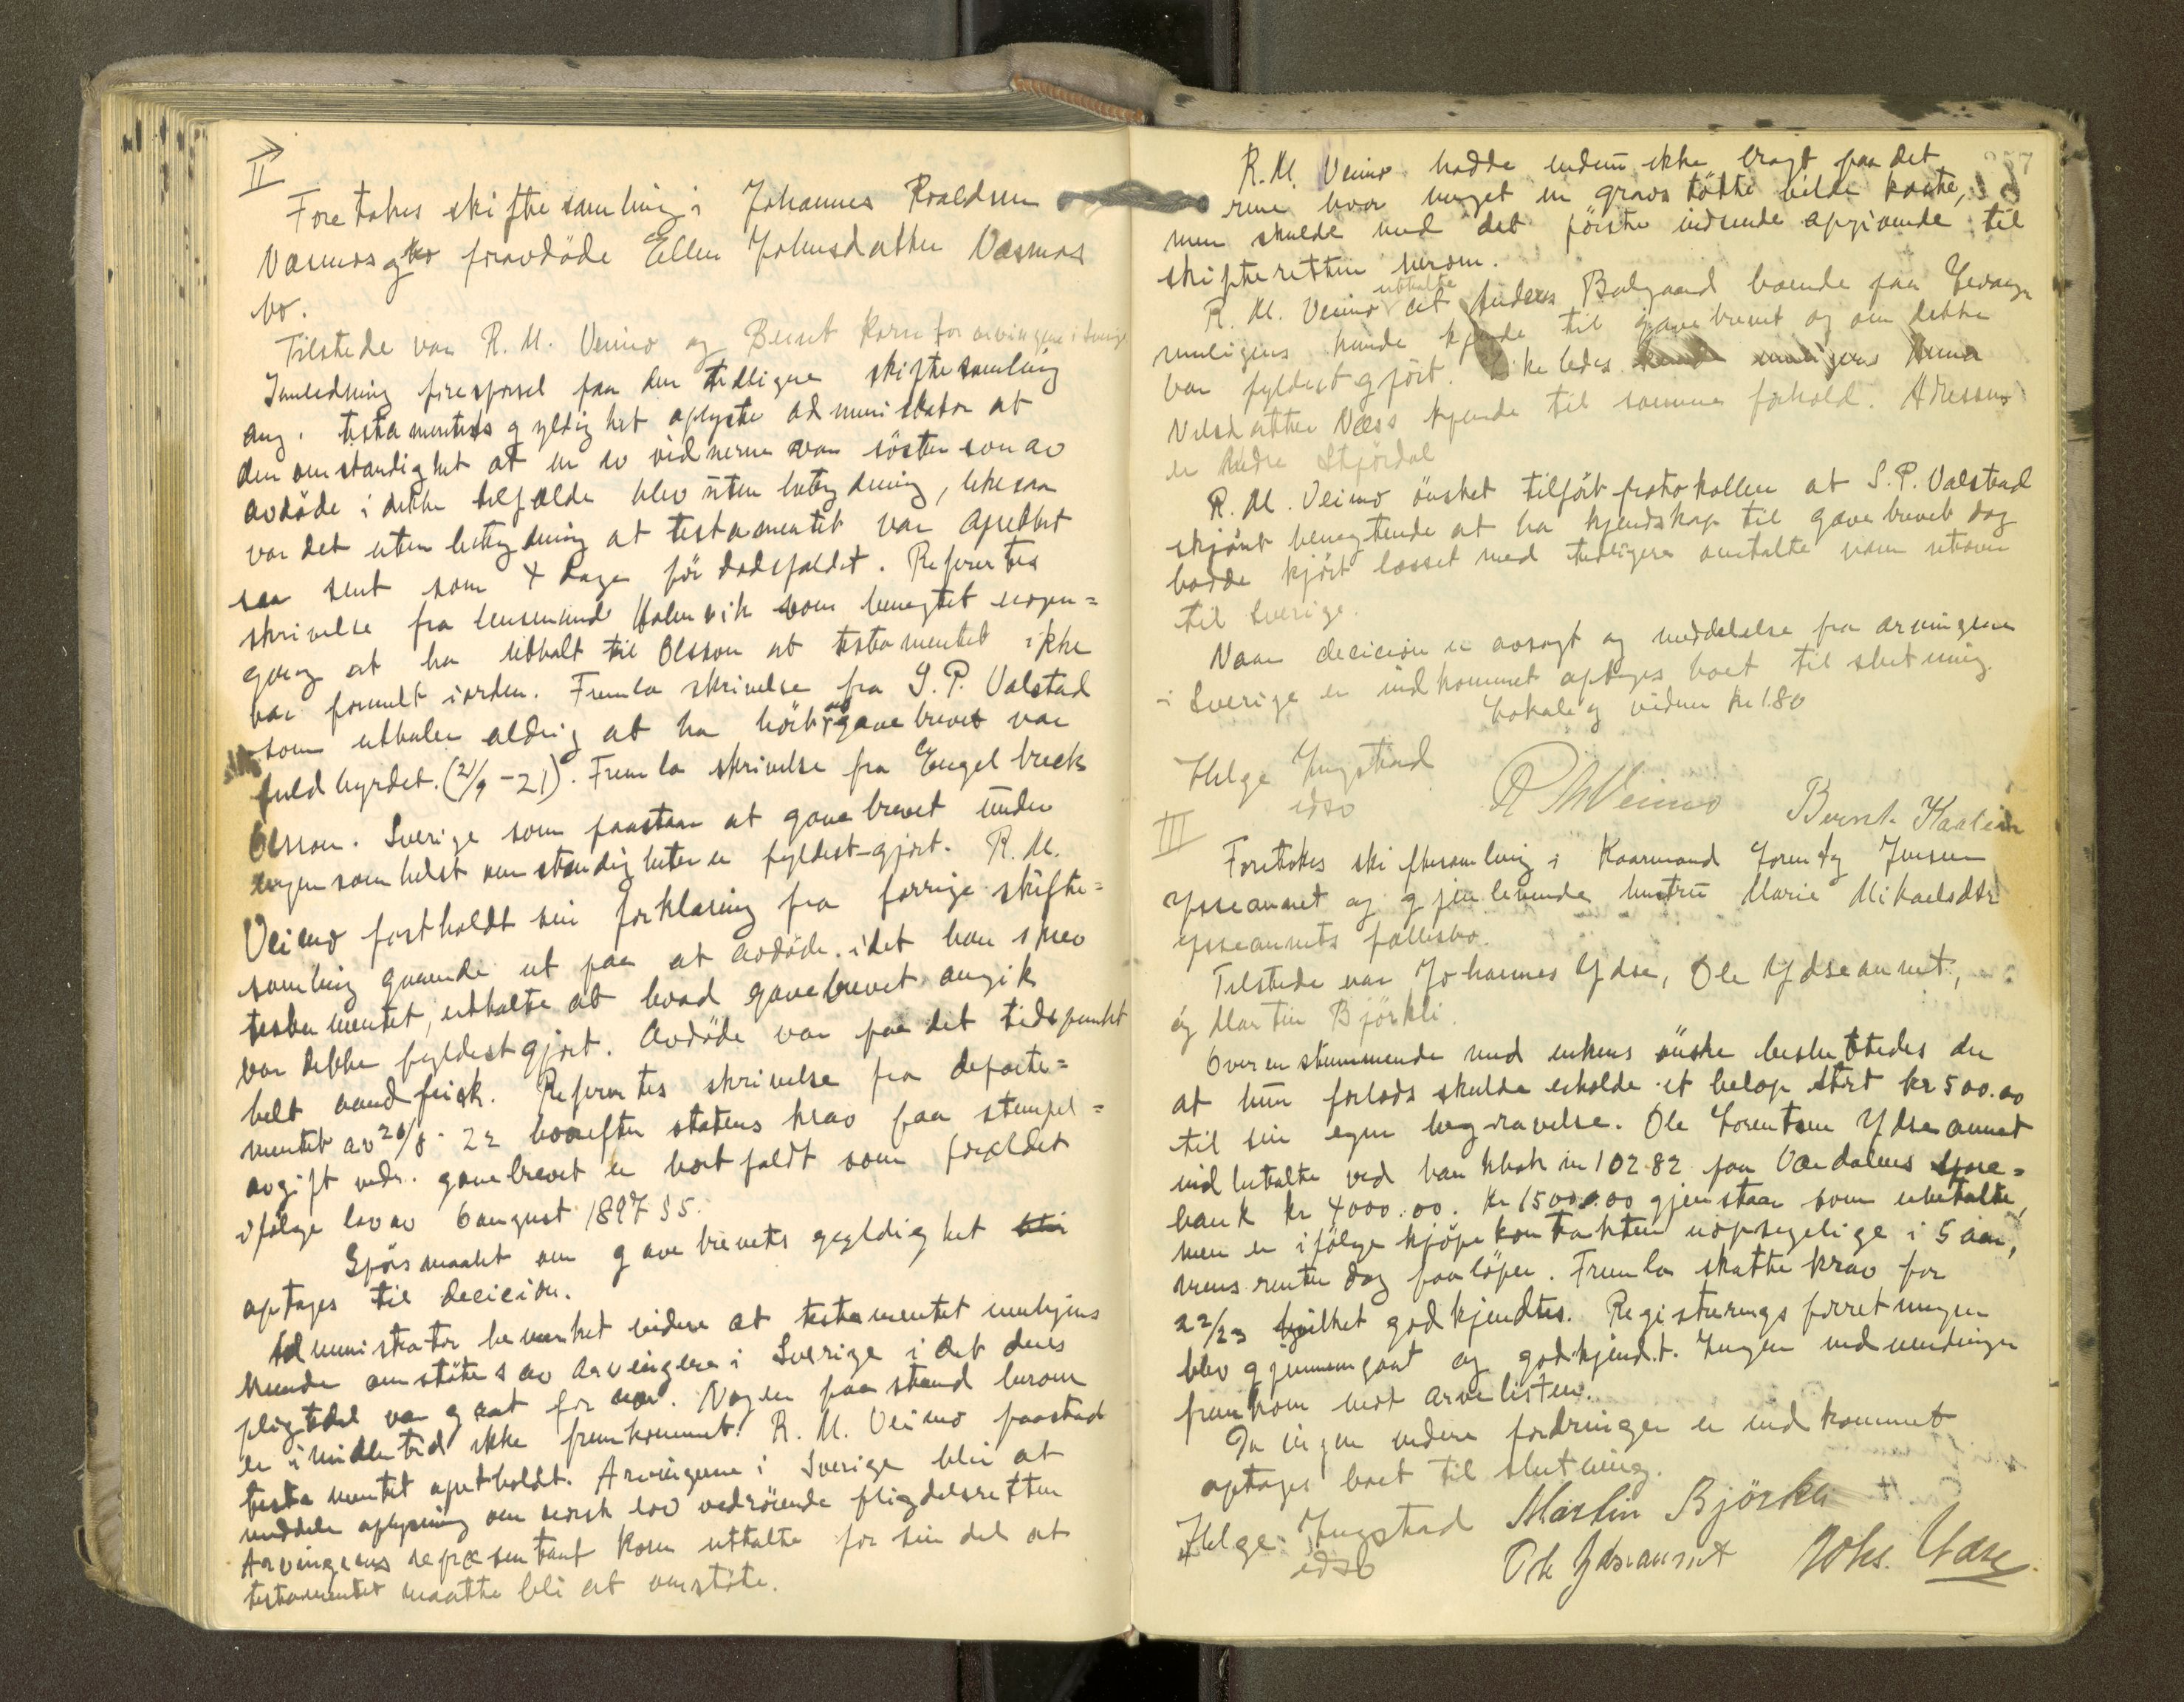 II
Foretakes skiftesamling i Johannes Roaldsen
Væsmos og foravdöde Ellen Johnsdatter Væsmos
bo.
Tilstede var R. M. Veimo og Bernt Korn for arvingene i Sverige
I anledning forespörsel fra den tidligere skiftesamling
ang. testamentets gyldighet oplyste administrator at
den omstændighet at en av vidnerne var söstersön av
avdöde i dette tilfælde blev uten betydning, likesaa
var det uten betydning at testamentet var oprettet
saa sent som 4 dage för dödsfaldet. Refertes
skrivelse fra lensmand Holmvik som benegtet nogen=
gang at ha uttalt til Olsson at testamentet ikke
var formelt iorden. Fremla skrivelse fra S. P. Valstad
som uttaler aldrig at ha hört at gavebrevet var
fuldbyrdet. (21/9 - 21). Fremla skrivelse fra Engelbreck
Olsson. Sverige som paastaar at gavebrevet under
ingensomhelst omstændigheter er fyldest-gjort. R. M.
Veimo fastholdt sin forklaring fra forrige skifte=
samling gaaende ut paa at avdöde, idet han skrev
testamentet, uttalte at hvad gavebrevet angik
var dette fyldestgjort. Avdöde var paa det tidspunkt
helt aandfrisk. Refertes skrivelse fra departe=
mentet av 28/8 - 22 hvorefter statens krav paa stempel=
avgift vedr. gavebrevet er bortfaldt som forældet
ifölge lov av 6 august 1897 § 5.
Spörsmaalet om gavebrevets gyldighet
optages til decision.
Administrator bemerket videre at testamentet muligens
kunde omstötes av arvingene i Sverige i det deres
pligtdel var gaat for nær. Nogen paastand herom
er imidlertid ikke fremkommet. R. M. Veimo paastod
testamentet opretholdt. Arvingerne i Sverige blir at
meddele oplysning om norsk lov vedrörende pligtdelsretten
Arvingenes repræsentant Korn uttalte for sin del at
testamentet maatte bli at omstöte.
R. M. Veimo hadde endnu ikke bragt paa det
rene hvor meget en gravstötte vilde koste,
men skulde med det förste indsende opgivende til
skifteretten herom.
R. M. Veimo uttalte at Anders Balgaard boende paa
muligens kunde kjende til gavebrevet og om dette
var fyldestgjort. Likeledes muligens Anna
Nilsdatter Næss kjende til samme forhold. Adressen
er Nedre Stjördal
R. M. Veimo önsket tilfört protokollen at S. P. Valstad
skjönt benegtende at ha kjendskap til gavebrevet dog
hadde kjört lasset med tidligere omtalte varer utover
til Sverige.
Naar decision er avsagt og meddelelse fra arvingene
i Sverige er indkommet optages boet til slutning.
Lokale og vidner kr 1.80
Helge Ingstad
edsv
R M Veimo
Bernt Kaalen
III
Foretokes skiftesamling i Kaarmand Lorents Jensen
Ydseaunet og gjenlevende hustru Marie Mikaelsdtr
Ydseaunets fællesbo.
Tilstede var Johannes Ydse, Ole Ydseaunet,
og Martin Björkli.
Overensstemmende med enkens önske besluttedes der
at hun forlods skulde erholde et belöp stort kr 500.00
til sin egen begravelse. Ole Lorentsen Ydseaunet
indbetalte ved bankbok nr 10282 paa Værdalens Spare=
bank kr 4000.00. Kr 1500.00 gjenstaar som ubetalte,
men er ifölge kjöpekontrakten uopsigelige i 5 aar,
mens renter dog paalöper. Fremla skattekrav for
22/23 hvilket godkjendtes. Registreringsforretningen
blev gjennemgaat og godkjendt. Ingen indvendinger
fremkom mot arvelisten.
Da ingen videre fordringer er indkommet
optages boet til slutning.
Helge Ingstad
edsv
Martin Björkli
Ole Ydseaunet
Johs. Ydse